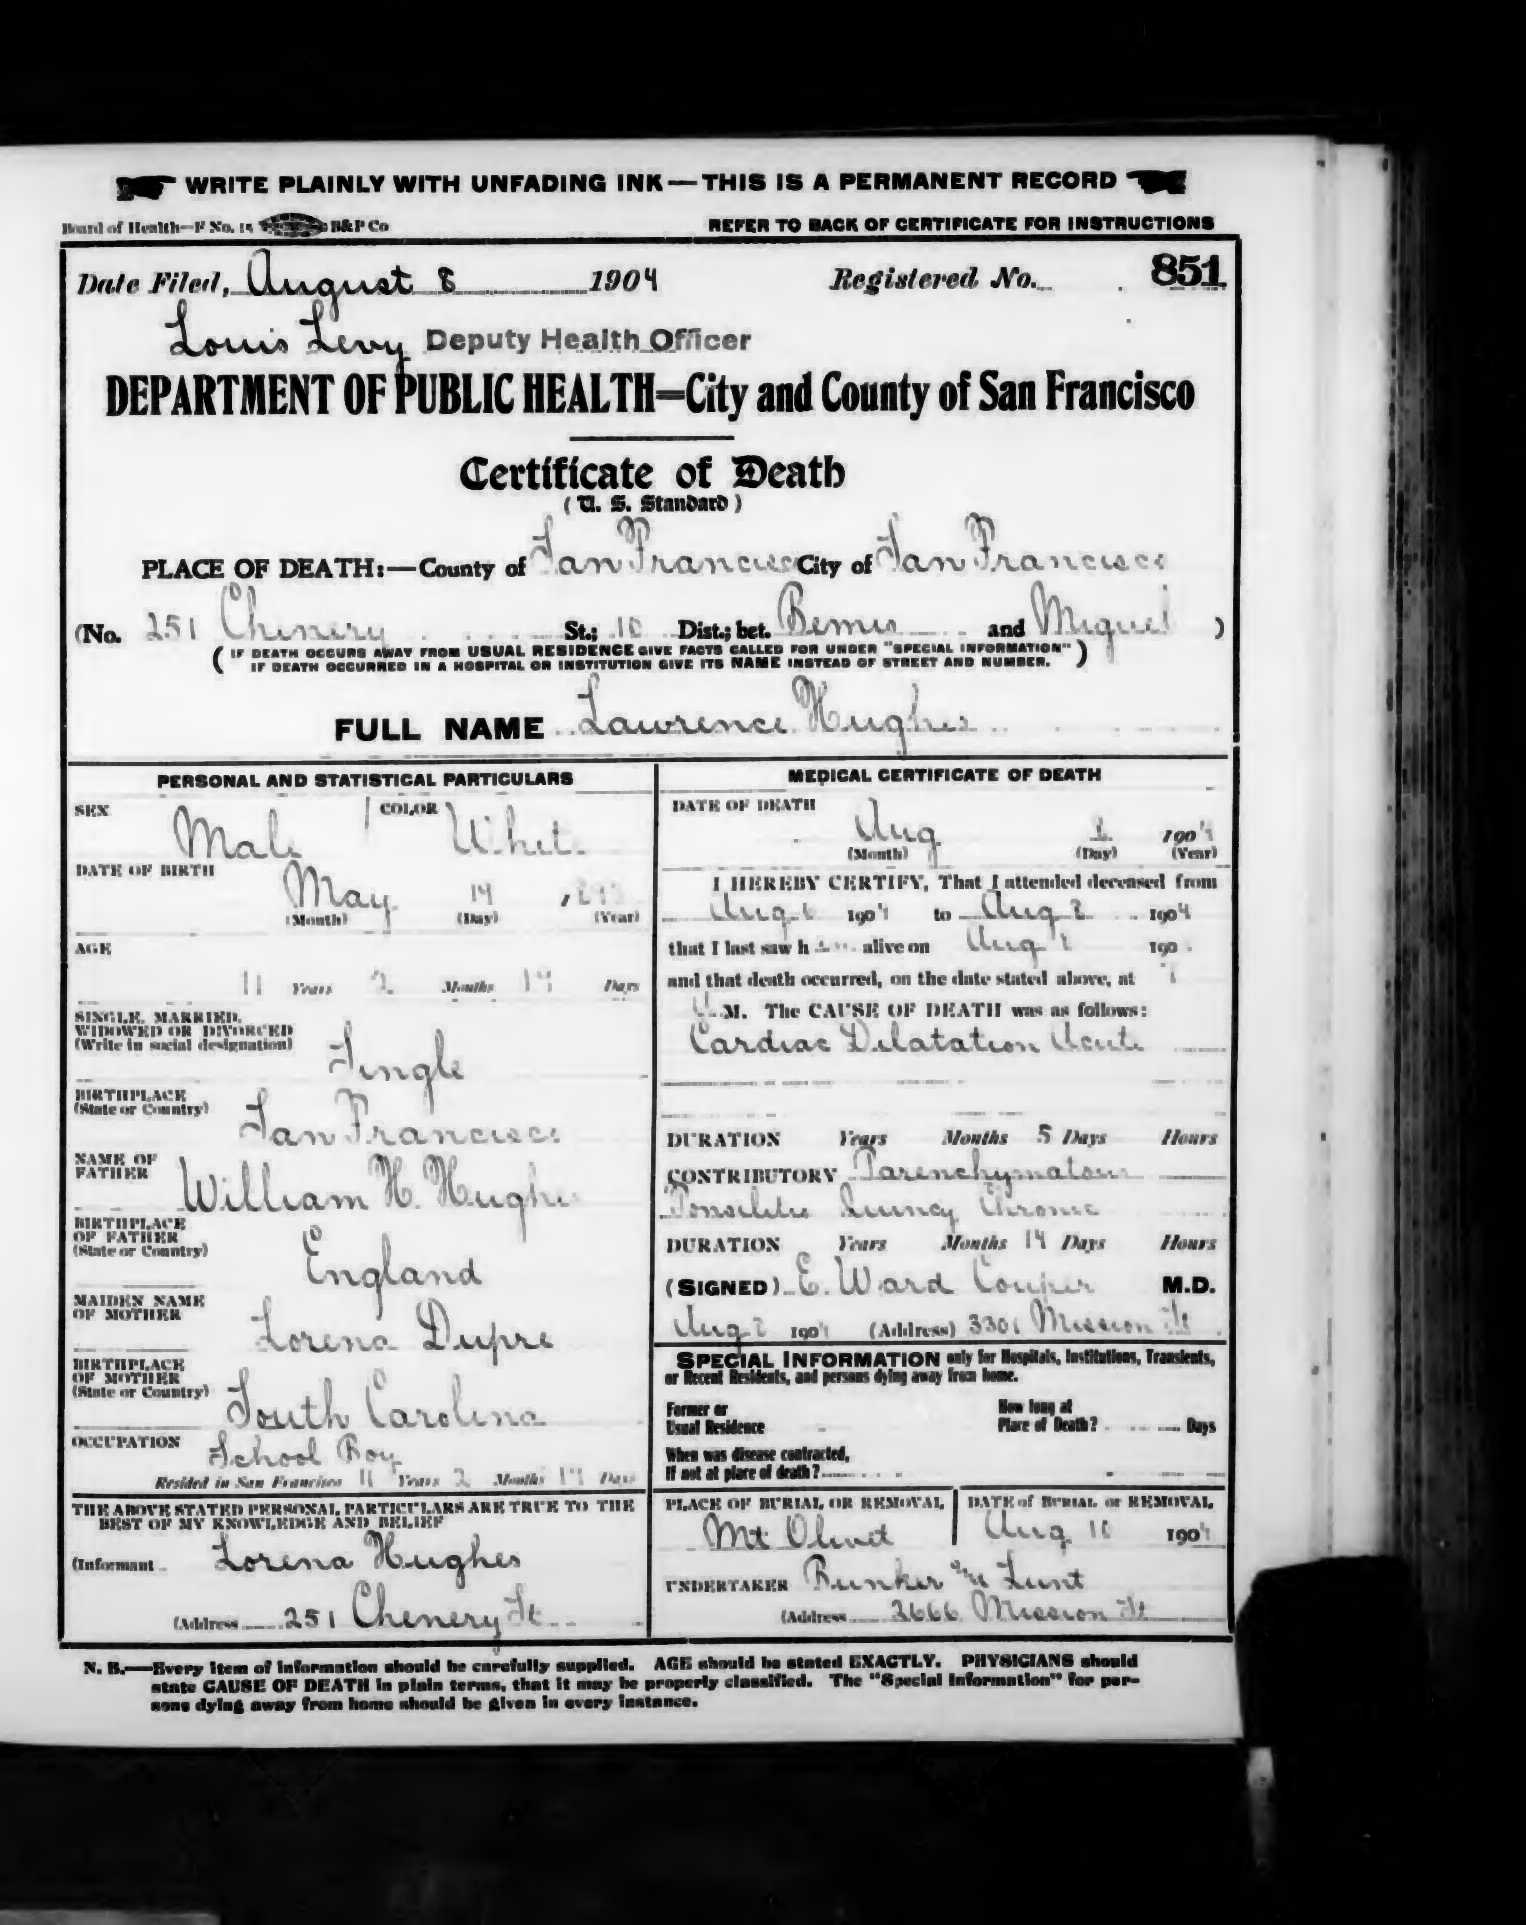 WRITE PLAINLY WITH UNFADING INK—THIS IS A PERMANENT RECORD
Board of Health—F No. 15 B&P Co
REFER TO BACK OF CERTIFICATE FOR INSTRUCTIONS
Date Filed, August 8 1904 Registered No. 851
Louis Levy Deputy Health Officer
DEPARTMENT OF PUBLIC HEALTH=City and County of San Francisco
Certificate of Death
(U. S. Standard)
PLACE OF DEATH:—County of San Francisco City of San Francisco
(No. 251 Chenery St.; 10 Dist.; bet. Bemis and Miguel )
(IF DEATH OCCURS AWAY FROM USUAL RESIDENCE GIVE FACTS CALLED FOR UNDER "SPECIAL INFORMATION"
IF DEATH OCCURRED IN A HOSPITAL OR INSTITUTION GIVE ITS NAME INSTEAD OF STREET AND NUMBER.)
FULL NAME Lawrence Hughes
PERSONAL AND STATISTICAL PARTICULARS
SEX Male COLOR White
DATE OF BIRTH
May 14
(Month) (Day) (Year)
AGE
11 Years 2 Months 14 Days
SINGLE, MARRIED,
WIDOWED OR DIVORCED
(Write in social designation)
Single
BIRTHPLACE
(State or Country)
San Francisco
NAME OF
FATHER
William H. Hughes
BIRTHPLACE
OF FATHER
(State or Country)
England
MAIDEN NAME
OF MOTHER
Lorena Dupre
BIRTHPLACE
OF MOTHER
(State or Country)
South Carolina
OCCUPATION
School Boy
Resided in San Francisco 11 Years 2 Months 14 Days
THE ABOVE STATED PERSONAL PARTICULARS ARE TRUE TO THE
BEST OF MY KNOWLEDGE AND BELIEF
(Informant Lorena Hughes
(Address 251 Chenery St
MEDICAL CERTIFICATE OF DEATH
DATE OF DEATH
Aug 8 1904
(Month) (Day) (Year)
I HEREBY CERTIFY, That I attended deceased from
Aug 6 1904 to Aug 8 1904
that I last saw him alive on Aug 8 190
and that death occurred, on the date stated above, at
M. The CAUSE OF DEATH was as follows:
Cardiac Dilatation Acute
DURATION Years Months 5 Days Hours
CONTRIBUTORY Parenchymatous
Tonsilitis Quincy Chronic
DURATION Years Months 14 Days Hours
(SIGNED) E. Ward Couper M.D.
Aug 8 1904 (Address) 3301 Mission St
SPECIAL INFORMATION only for Hospitals, Institutions, Transients,
or Recent Residents, and persons dying away from home.
Former or
Usual Residence
How long at
Place of Death? Days
When was disease contracted,
If not at place of death?
PLACE OF BURIAL OR REMOVAL
Mt Olivet
DATE of BURIAL or REMOVAL
Aug 10 1904
UNDERTAKER Bunker and Lunt
(Address 2666 Mission St
N. B.—Every item of information should be carefully supplied. AGE should be stated EXACTLY. PHYSICIANS should
state CAUSE OF DEATH in plain terms, that it may be properly classified. The "Special Information" for per-
sons dying away from home should be given in every instance.